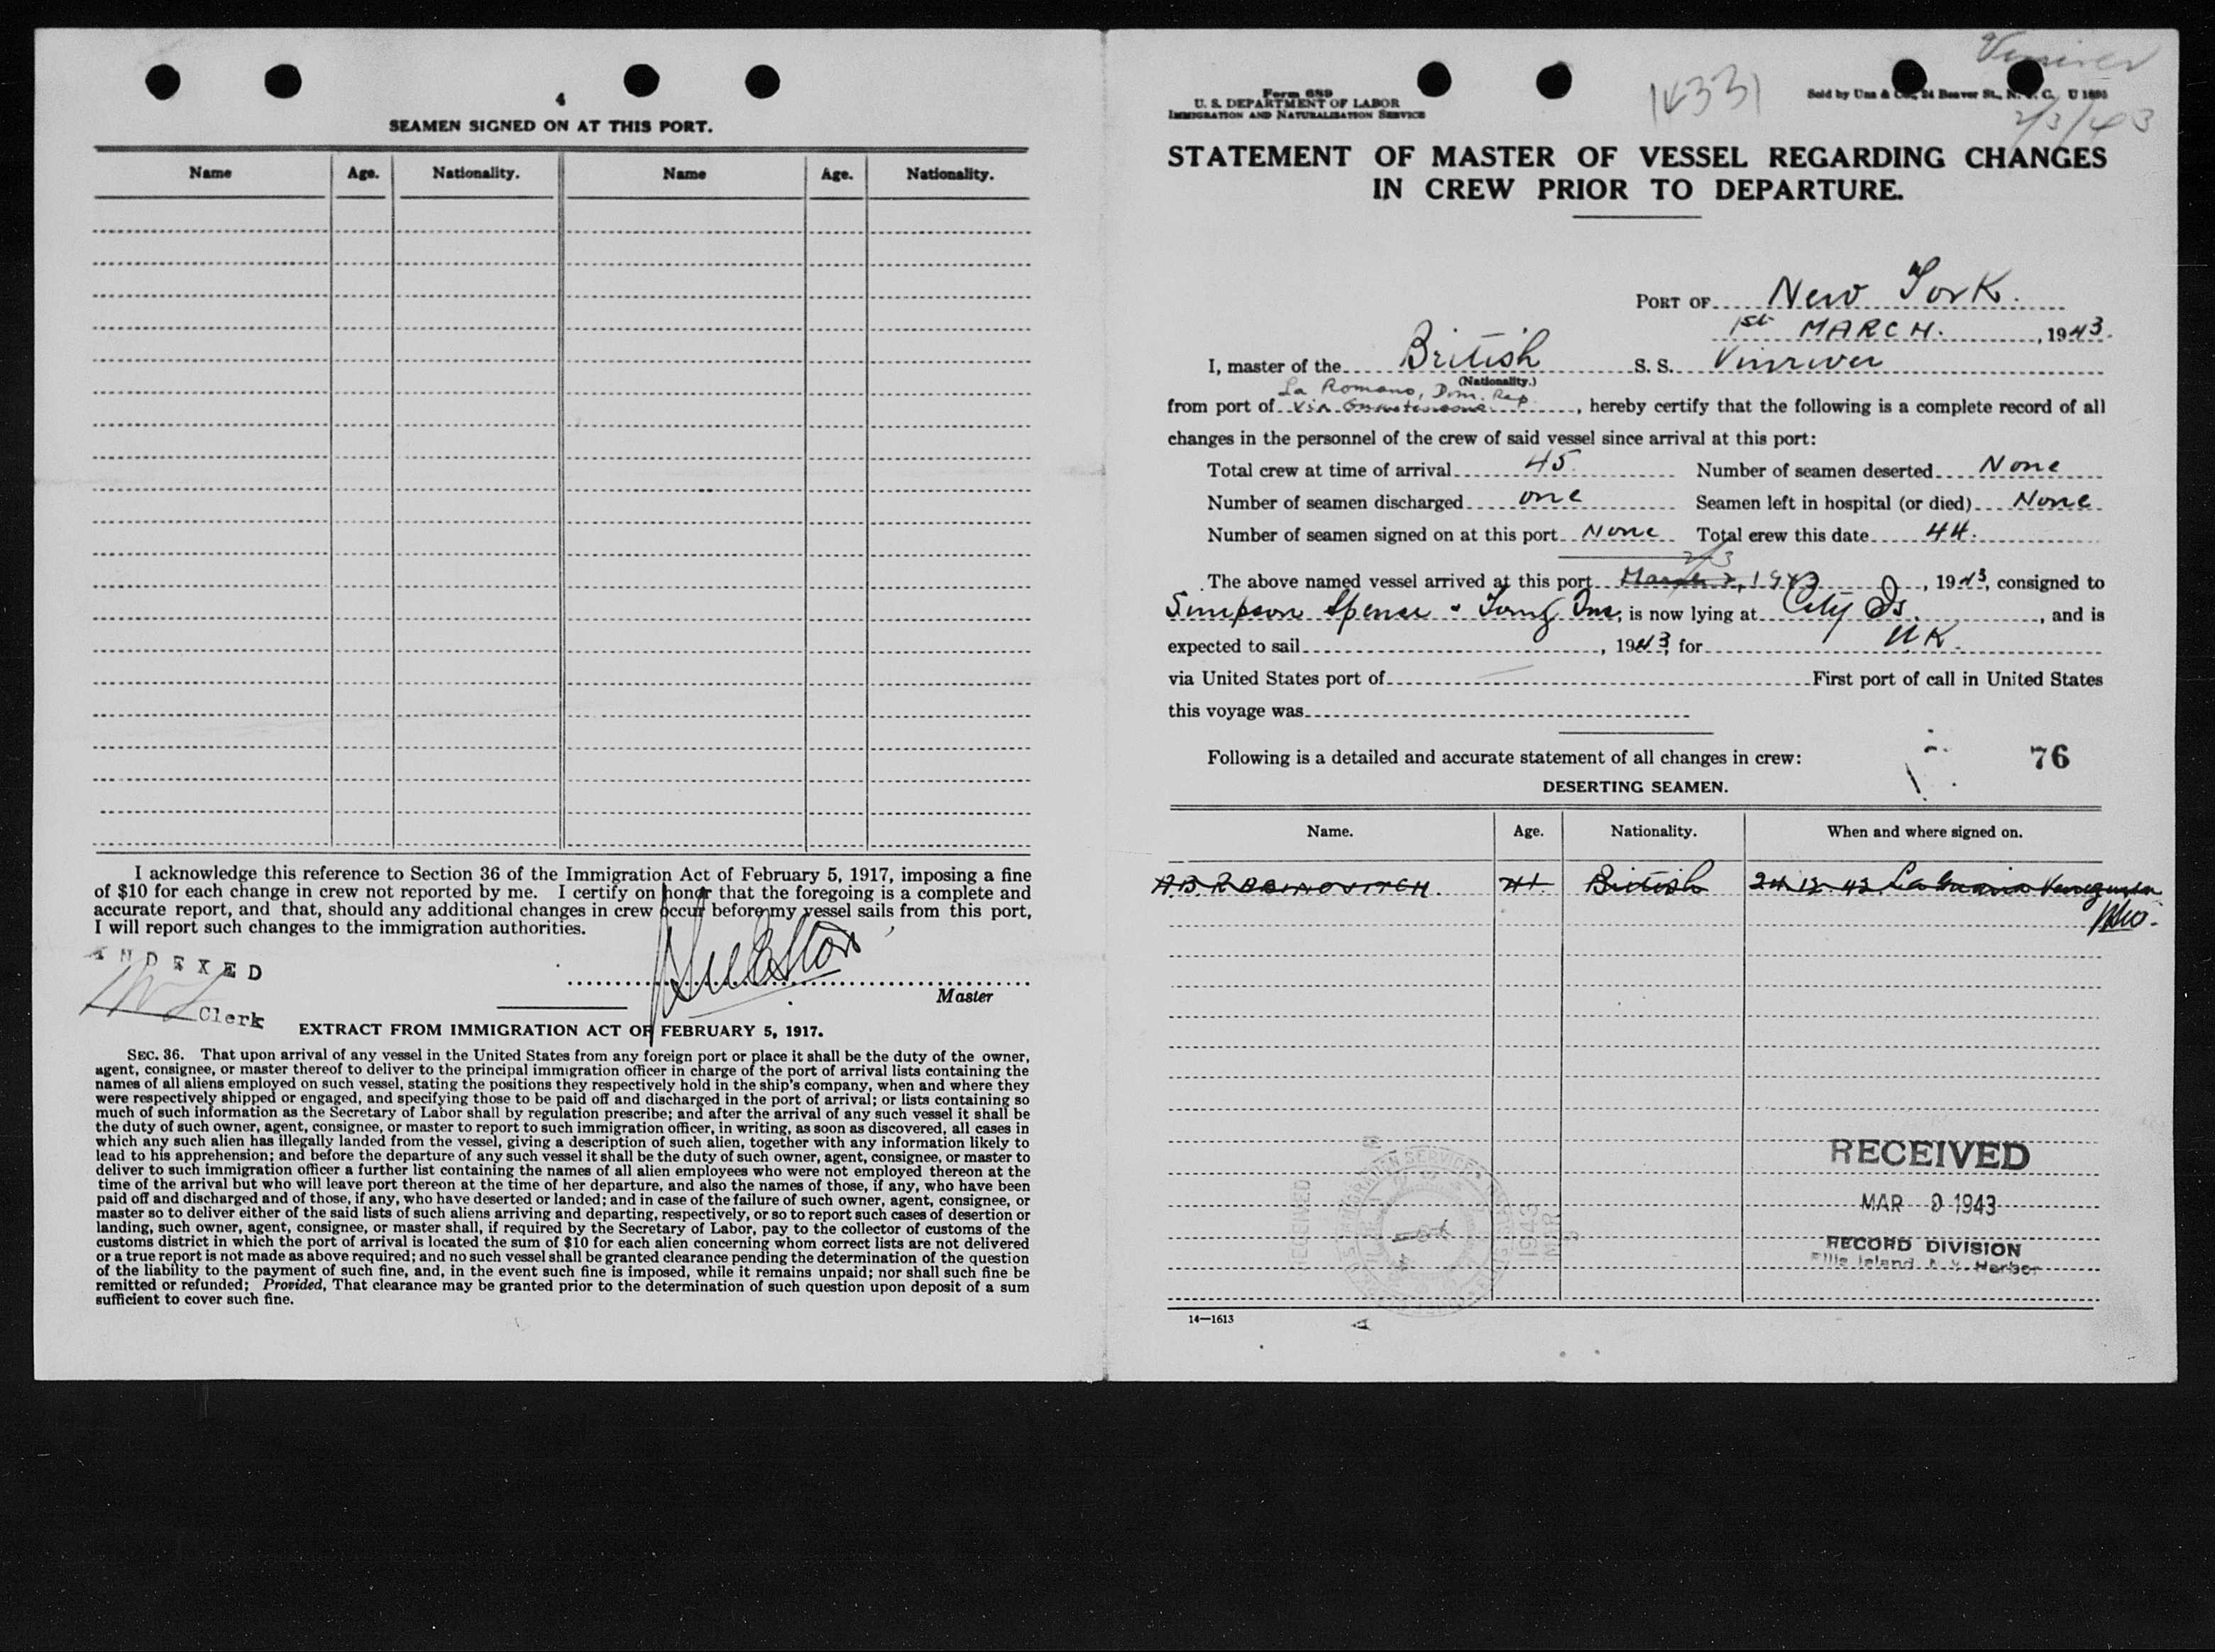 4
SEAMEN SIGNED ON AT THIS PORT.
Name Age. Nationality. Name Age. Nationality.
I acknowledge this reference to Section 36 of the Immigration Act of February 5, 1917, imposing a fine
of $10 for each change in crew not reported by me. I certify on honor that the foregoing is a complete and
accurate report, and that, should any additional changes in crew occur before my vessel sails from this port,
I will report such changes to the immigration authorities.
INDEXED
Clerk
Master
EXTRACT FROM IMMIGRATION ACT OF FEBRUARY 5, 1917.
SEC. 36. That upon arrival of any vessel in the United States from any foreign port or place it shall be the duty of the owner,
agent, consignee, or master thereof to deliver to the principal immigration officer in charge of the port of arrival lists containing the
names of all aliens employed on such vessel, stating the positions they respectively hold in the ship's company, when and where they
were respectively shipped or engaged, and specifying those to be paid off and discharged in the port of arrival; or lists containing so
much of such information as the Secretary of Labor shall by regulation prescribe; and after the arrival of any such vessel it shall be
the duty of such owner, agent, consignee, or master to report to such immigration officer, in writing, as soon as discovered, all cases in
which any such alien has illegally landed from the vessel, giving a description of such alien, together with any information likely to
lead to his apprehension; and before the departure of any such vessel it shall be the duty of such owner, agent, consignee, or master to
deliver to such immigration officer a further list containing the names of all alien employees who were not employed thereon at the
time of the arrival but who will leave port thereon at the time of her departure, and also the names of those, if any, who have been
paid off and discharged and of those, if any, who have deserted or landed; and in case of the failure of such owner, agent, consignee, or
master so to deliver either of the said lists of such aliens arriving and departing, respectively, or so to report such cases of desertion or
landing, such owner, agent, consignee, or master shall, if required by the Secretary of Labor, pay to the collector of customs of the
customs district in which the port of arrival is located the sum of $10 for each alien concerning whom correct lists are not delivered
or a true report is not made as above required; and no such vessel shall be granted clearance pending the determination of the question
of the liability to the payment of such fine, and, in the event such fine is imposed, while it remains unpaid; nor shall such fine be
remitted or refunded; Provided, That clearance may be granted prior to the determination of such question upon deposit of a sum
sufficient to cover such fine.
Form 689
U. S. DEPARTMENT OF LABOR
IMMIGRATION AND NATURALIZATION SERVICE
14331
Sold by Unz & Co., 24 Beaver St., N. Y. C. U 1895
2/3/43
STATEMENT OF MASTER OF VESSEL REGARDING CHANGES
IN CREW PRIOR TO DEPARTURE.
PORT OF New York.
1st MARCH. , 1943.
I, master of the British S. S. Vinriver
(Nationality.)
La Romano, Dom. Rep.
from port of via , hereby certify that the following is a complete record of all
changes in the personnel of the crew of said vessel since arrival at this port:
Total crew at time of arrival 45. Number of seamen deserted None
Number of seamen discharged one Seamen left in hospital (or died) None
Number of seamen signed on at this port None Total crew this date 44.
2/3
The above named vessel arrived at this port March 2, 1943 , 1943, consigned to
Simpson Spence & Young Inc, is now lying at City Is. , and is
expected to sail , 1943, for UK.
via United States port of First port of call in United States
this voyage was
Following is a detailed and accurate statement of all changes in crew:
76
DESERTING SEAMEN.
Name. Age. Nationality. When and where signed on.
A.B. RABINOVITCH. 41 British 24.12.42 La Guaira Venezuela
RECEIVED
MAR 9 1943
RECORD DIVISION
Ellis Island, N. Y. Harbor
RECEIVED
1943
MAR
9
14—1613